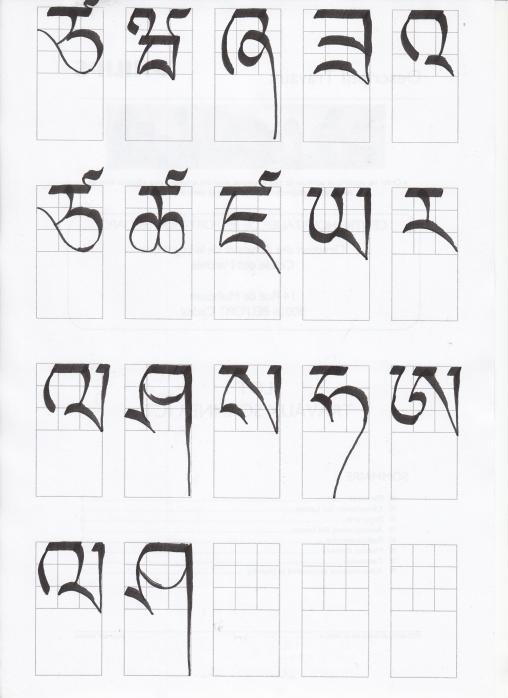 ཙ ཝ ཞ ཟ འ
ཙ ཚ ཛ ཡ ར
ལ ཤ ས ཧ ཨ
ལ ཤ